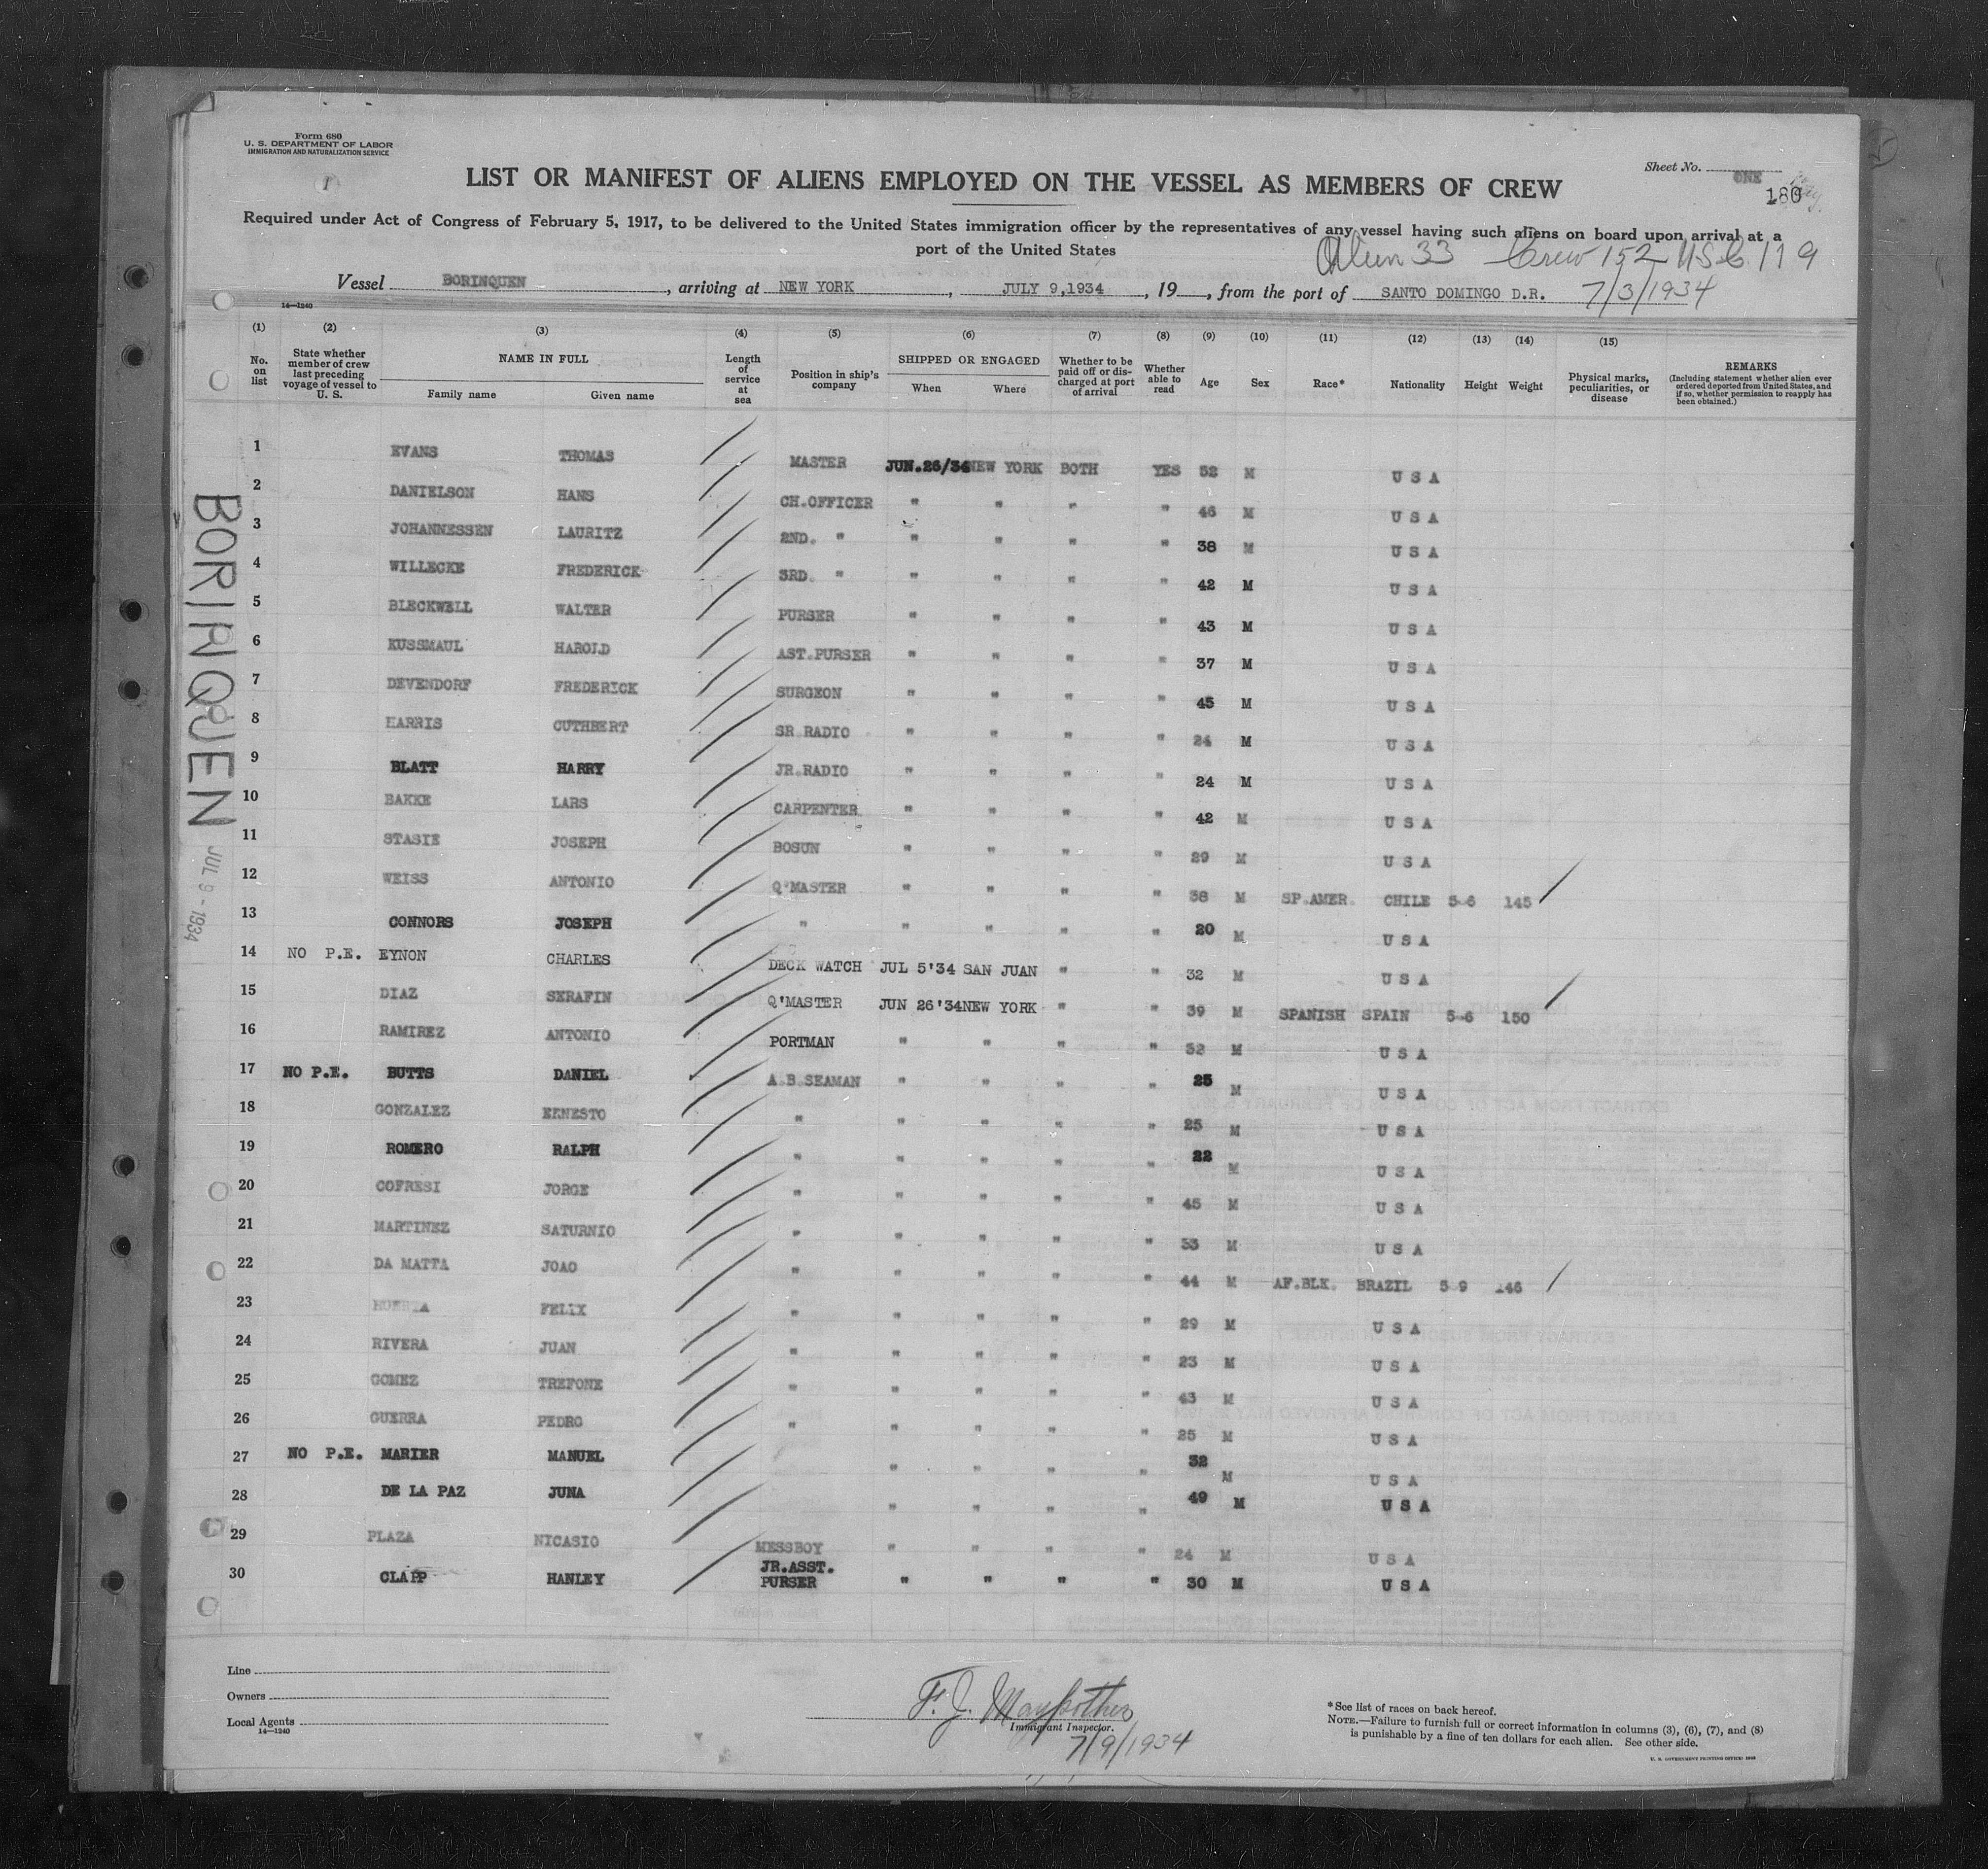 Form 680
U. S. DEPARTMENT OF LABOR
IMMIGRATION AND NATURALIZATION SERVICE
1
Sheet No. ONE
180
LIST OR MANIFEST OF ALIENS EMPLOYED ON THE VESSEL AS MEMBERS OF CREW
Required under Act of Congress of February 5, 1917, to be delivered to the United States immigration officer by the representatives of any vessel having such aliens on board upon arrival at a
port of the United States
Alien 33 Crew 152 USC 119
Vessel BORINQUEN, arriving at NEW YORK, JULY 9,1934, 19, from the port of SANTO DOMINGO D.R. 7/3/1934
14—1240
(1) (2) (3) (4) (5) (6) (7) (8) (9) (10) (11) (12) (13) (14) (15)
No. on list | State whether member of crew last preceding voyage of vessel to U. S. | NAME IN FULL | Family name | Given name | Length of service at sea | Position in ship's company | SHIPPED OR ENGAGED | When | Where | Whether to be paid off or discharged at port of arrival | Whether able to read | Age | Sex | Race* | Nationality | Height | Weight | Physical marks, peculiarities, or disease | REMARKS (Including statement whether alien ever ordered deported from United States, and if so, whether permission to reapply has been obtained.)
1 EVANS THOMAS MASTER JUN.26/34 NEW YORK BOTH YES 52 M U S A
2 DANIELSON HANS CH.OFFICER " " " " 46 M U S A
3 JOHANNESSEN LAURITZ 2ND. " " " " " 38 M U S A
4 WILLECKE FREDERICK 3RD. " " " " " 42 M U S A
5 BLECKWELL WALTER PURSER " " " " 43 M U S A
6 KUSSMAUL HAROLD AST.PURSER " " " " 37 M U S A
7 DEVENDORF FREDERICK SURGEON " " " " 45 M U S A
8 HARRIS CUTHBERT SR.RADIO " " " " 24 M U S A
9 BLATT HARRY JR.RADIO " " " " 24 M U S A
10 BAKKE LARS CARPENTER " " " " 42 M U S A
11 STASIE JOSEPH BOSUN " " " " 29 M U S A
12 WEISS ANTONIO Q'MASTER " " " " 38 M SP.AMER. CHILE 5-6 145
13 CONNORS JOSEPH " " " " " 20 M U S A
14 NO P.E. EYNON CHARLES DECK WATCH JUL 5'34 SAN JUAN " " 32 M U S A
15 DIAZ SERAFIN Q'MASTER JUN 26'34 NEW YORK " " 39 M SPANISH SPAIN 5-6 150
16 RAMIREZ ANTONIO PORTMAN " " " " 32 M U S A
17 NO P.E. BUTTS DANIEL A.B.SEAMAN " " " " 25 M U S A
18 GONZALEZ ERNESTO " " " " " 25 M U S A
19 ROMERO RALPH " " " " " 22 M U S A
20 COFRESI JORGE " " " " " 45 M U S A
21 MARTINEZ SATURNIO " " " " " 33 M U S A
22 DA MATTA JOAO " " " " " 44 M AF.BLK. BRAZIL 5 9 146
23 FELIX " " " " " 29 M U S A
24 RIVERA JUAN " " " " " 23 M U S A
25 GOMEZ TREFONE " " " " " 43 M U S A
26 GUERRA PEDRO " " " " " 25 M U S A
27 NO P.E. MARIER MANUEL " " " " 32 M U S A
28 DE LA PAZ JUNA " " " " 49 M U S A
29 PLAZA NICASIO MESSBOY " " " " 24 M U S A
30 CLAPP HANLEY JR.ASST. PURSER " " " " 30 M U S A
BORINQUEN
JUL 9 - 1934
Line
Owners
Local Agents
14—1240
F. J.
Immigrant Inspector.
7/9/1934
*See list of races on back hereof.
NOTE.—Failure to furnish full or correct information in columns (3), (6), (7), and (8)
is punishable by a fine of ten dollars for each alien. See other side.
U. S. GOVERNMENT PRINTING OFFICE: